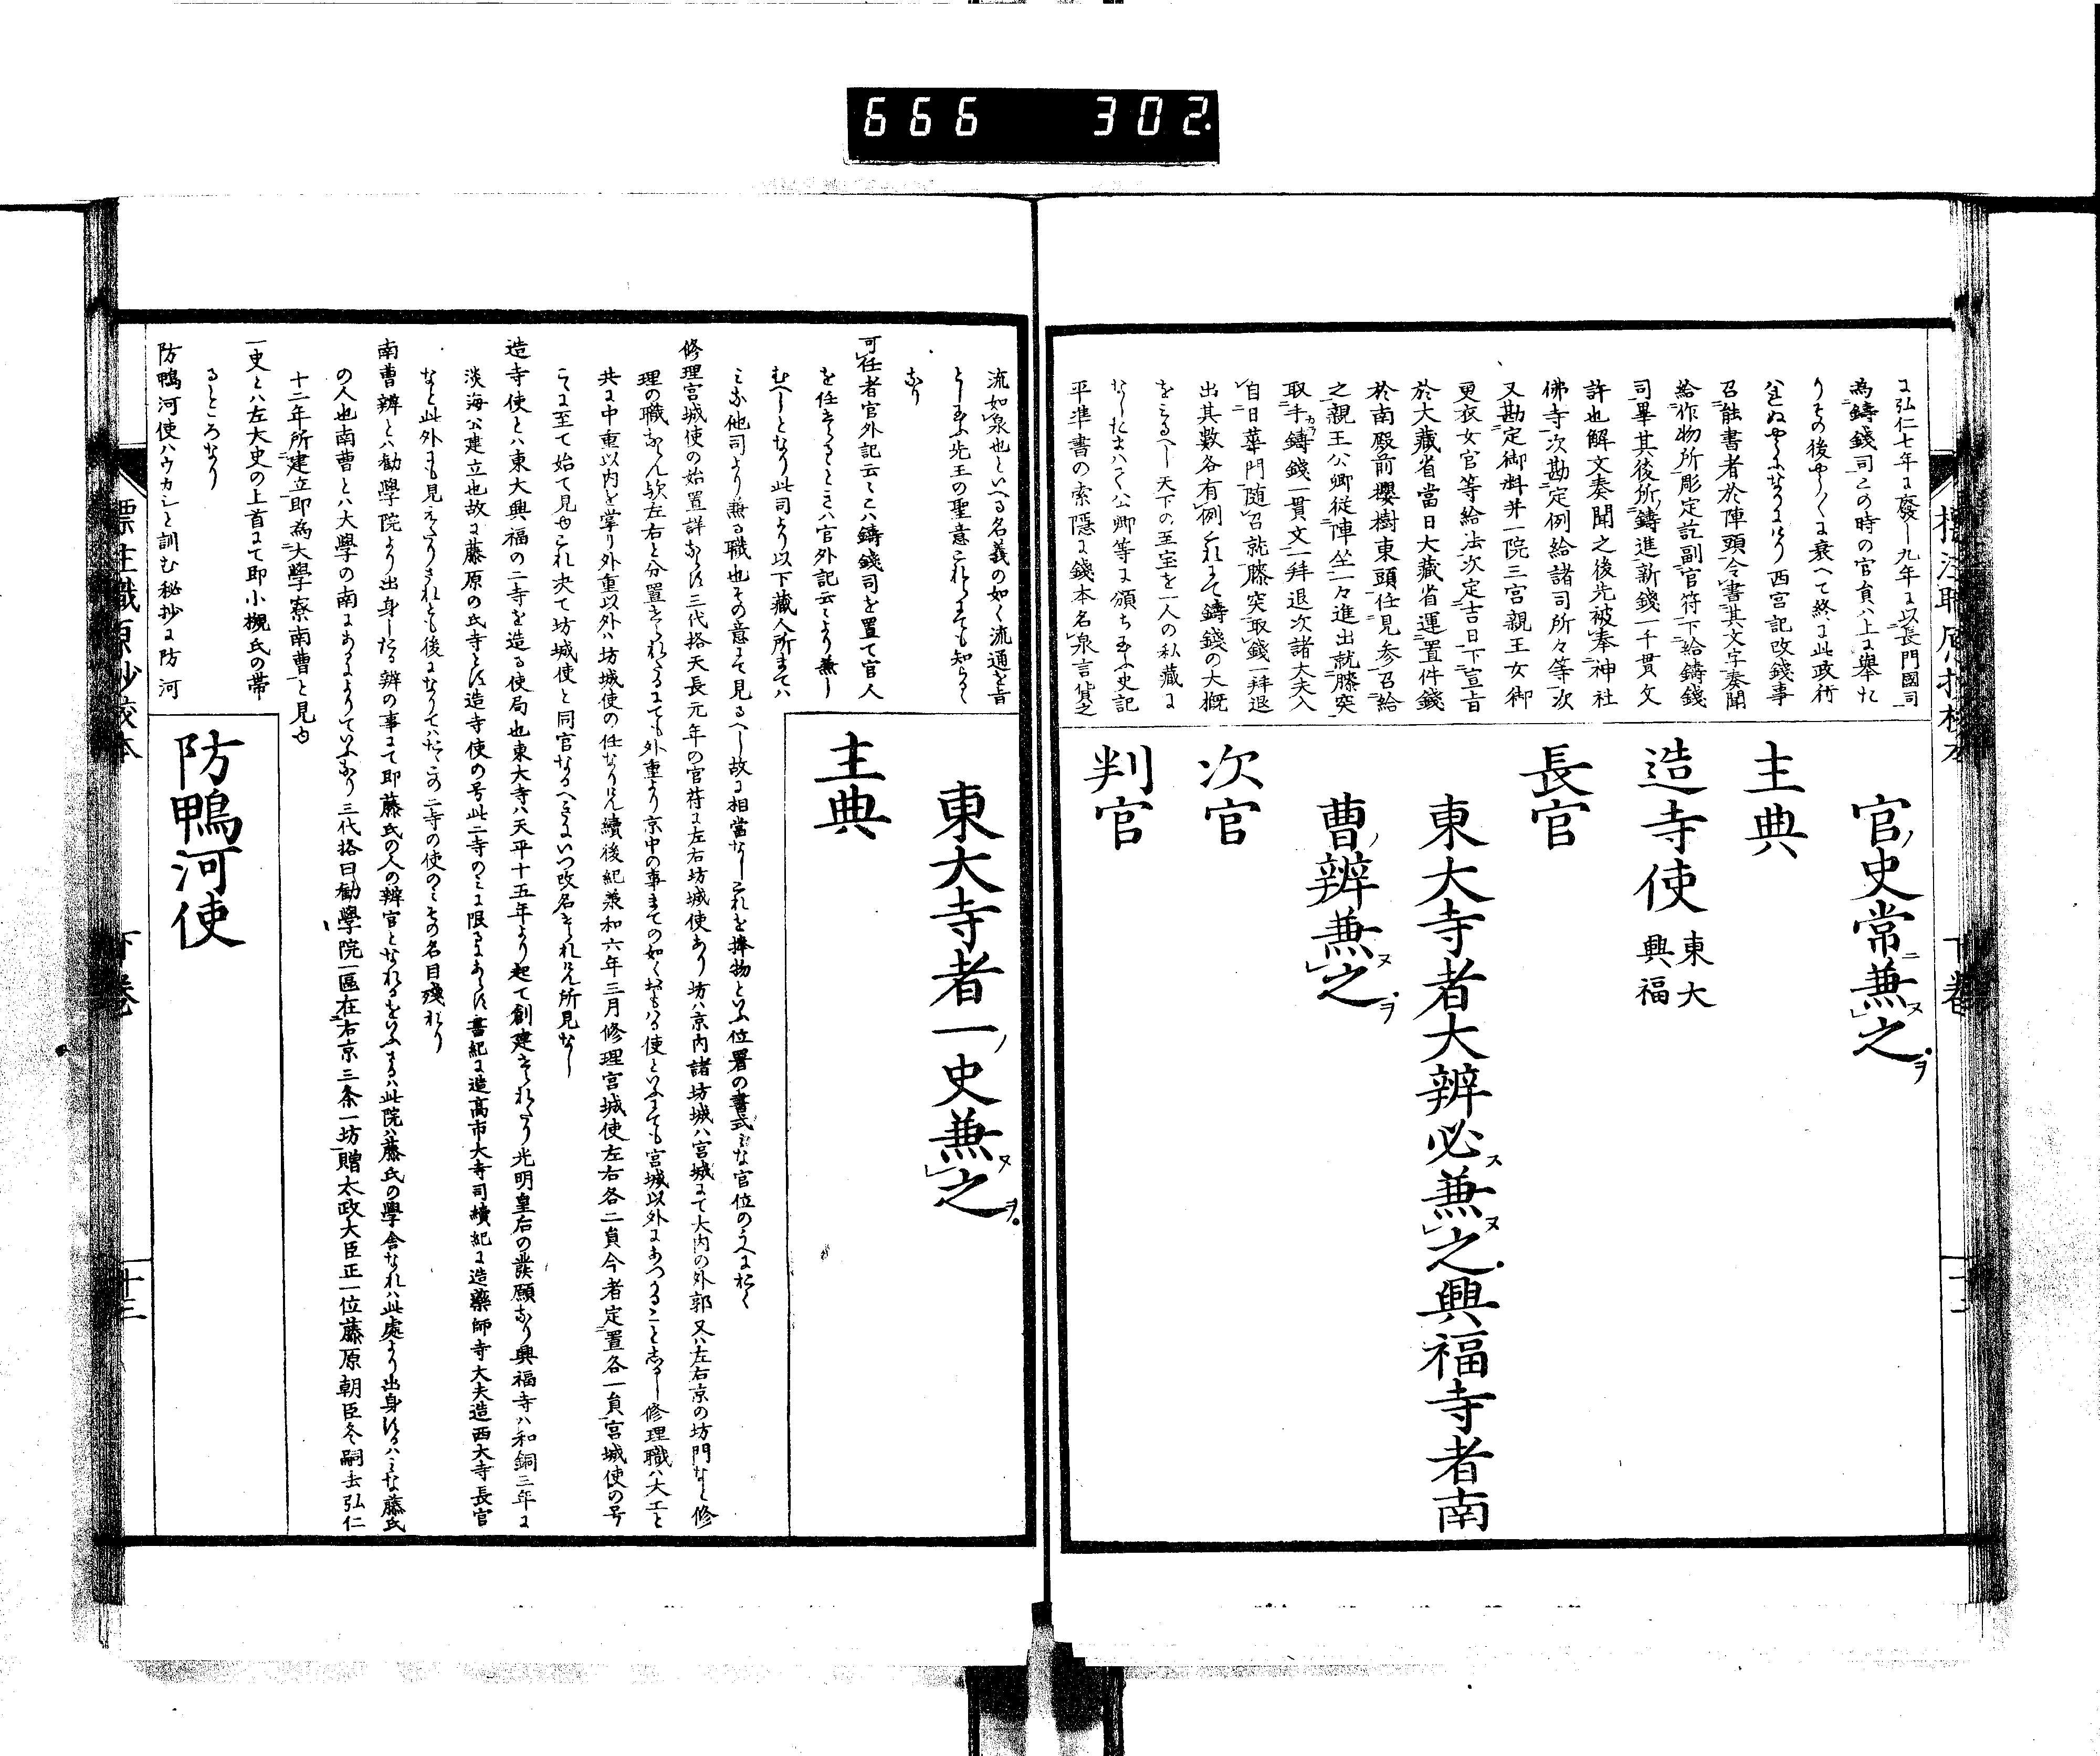 666 302.
官ノ史常ニ兼ヌ之ヲ
主典
造寺使 東大 興福
長官
東大寺者大辨必ス兼ヌ之興福寺者南
曹ノ辨兼ヌ之ヲ
次官
判官
に弘仁七年に廢し九年に以長門國司
為鑄錢司との時の官員ハ上に擧た
りその後やうくに衰へて終に此政行
西宮記改錢事
召能書者於陣頭令書其文字奏聞
給作物所彫定訖副官符下給鑄錢
司畢其後所鑄進新錢一千貫文
許也解文奏聞之後先被奉神社
佛寺次勘定例給諸司所々等次
又勘定御料并一院三宮親王女御
更衣女官等給法次定吉日下宣旨
於大藏省當日大藏省運置件錢
於南殿前櫻樹東頭任見参召給
之親王公卿従陣坐一々進出就膝突
取手鑄錢一貫文一拜退次諸大夫入
自日華門随召就膝突取錢一拜退
出其數各有例これにて鑄錢の大概
をみるへし天下の至宝を一人の私藏に
公卿等に頒ち玉ふ史記
平準書の索隠に錢本名泉言貨之
流如泉也といへる名義の如く流通を旨
としまふ先王の聖意これらにても知らるゝ
なり
可任者官外記云々とハ鑄錢司を置て官人
を任せらるゝときハ官外記云々より兼し
むへしとなり此司より以下藏人所まてハ
みな他司より兼る職也その意にて見るへし故に相當なしこれを捧物といふ位署の書式みな官位のうへにおく
修理宮城使の始置詳ならす三代格天長元年の官符に左右坊城使あり坊ハ京内諸坊城ハ宮城にて大内の外郭又ハ左右京の坊門なと修
理の職ならん欤左右と分置せられたるにても外重より京中の事まての如くおもハる使といふにても宮城以外にあつかることしるし修理職ハ大工と
共に中重以内を掌り外重以外ハ坊城使の任なりけん續後紀承和六年三月修理宮城使左右各二員今者定置各一員宮城使の号
こゝに至て始て見ゆこれ决て坊城使と同官なるへきにいつ改名せられけん所見なし
造寺使とハ東大興福の二寺を造る使局也東大寺ハ天平十五年より起て創建せられたり光明皇后の發願なり興福寺ハ和銅三年に
淡海公建立也故に藤原の氏寺とす造寺使の号此二寺のみに限るにあらす書紀に造高市大寺司續紀に造藥師寺大夫造西大寺長官
なと此外にも見えたりされとも後になりてハたゝこの二寺の使のみその名目殘れり
南曹辨とハ勸學院より出身したる辨の事にて即藤氏の人の辨官となれるをいふさるハ此院ハ藤氏の學舎なれハ此處より出身するハみな藤氏
の人也南曹とハ大學の南にあるによりていふなり三代格曰勸學院一區在右京三条一坊贈太政大臣正一位藤原朝臣冬嗣去弘仁
十二年所建立即為大學寮南曹と見ゆ
一史とハ左大史の上首にて即小槻氏の帶
るところなり
防鴨河使ハウカシと訓む秘抄に防河
東大寺者一ノ史兼ヌ之ヲ
主典
防鴨河使
標注職原抄校本
下巻
十三